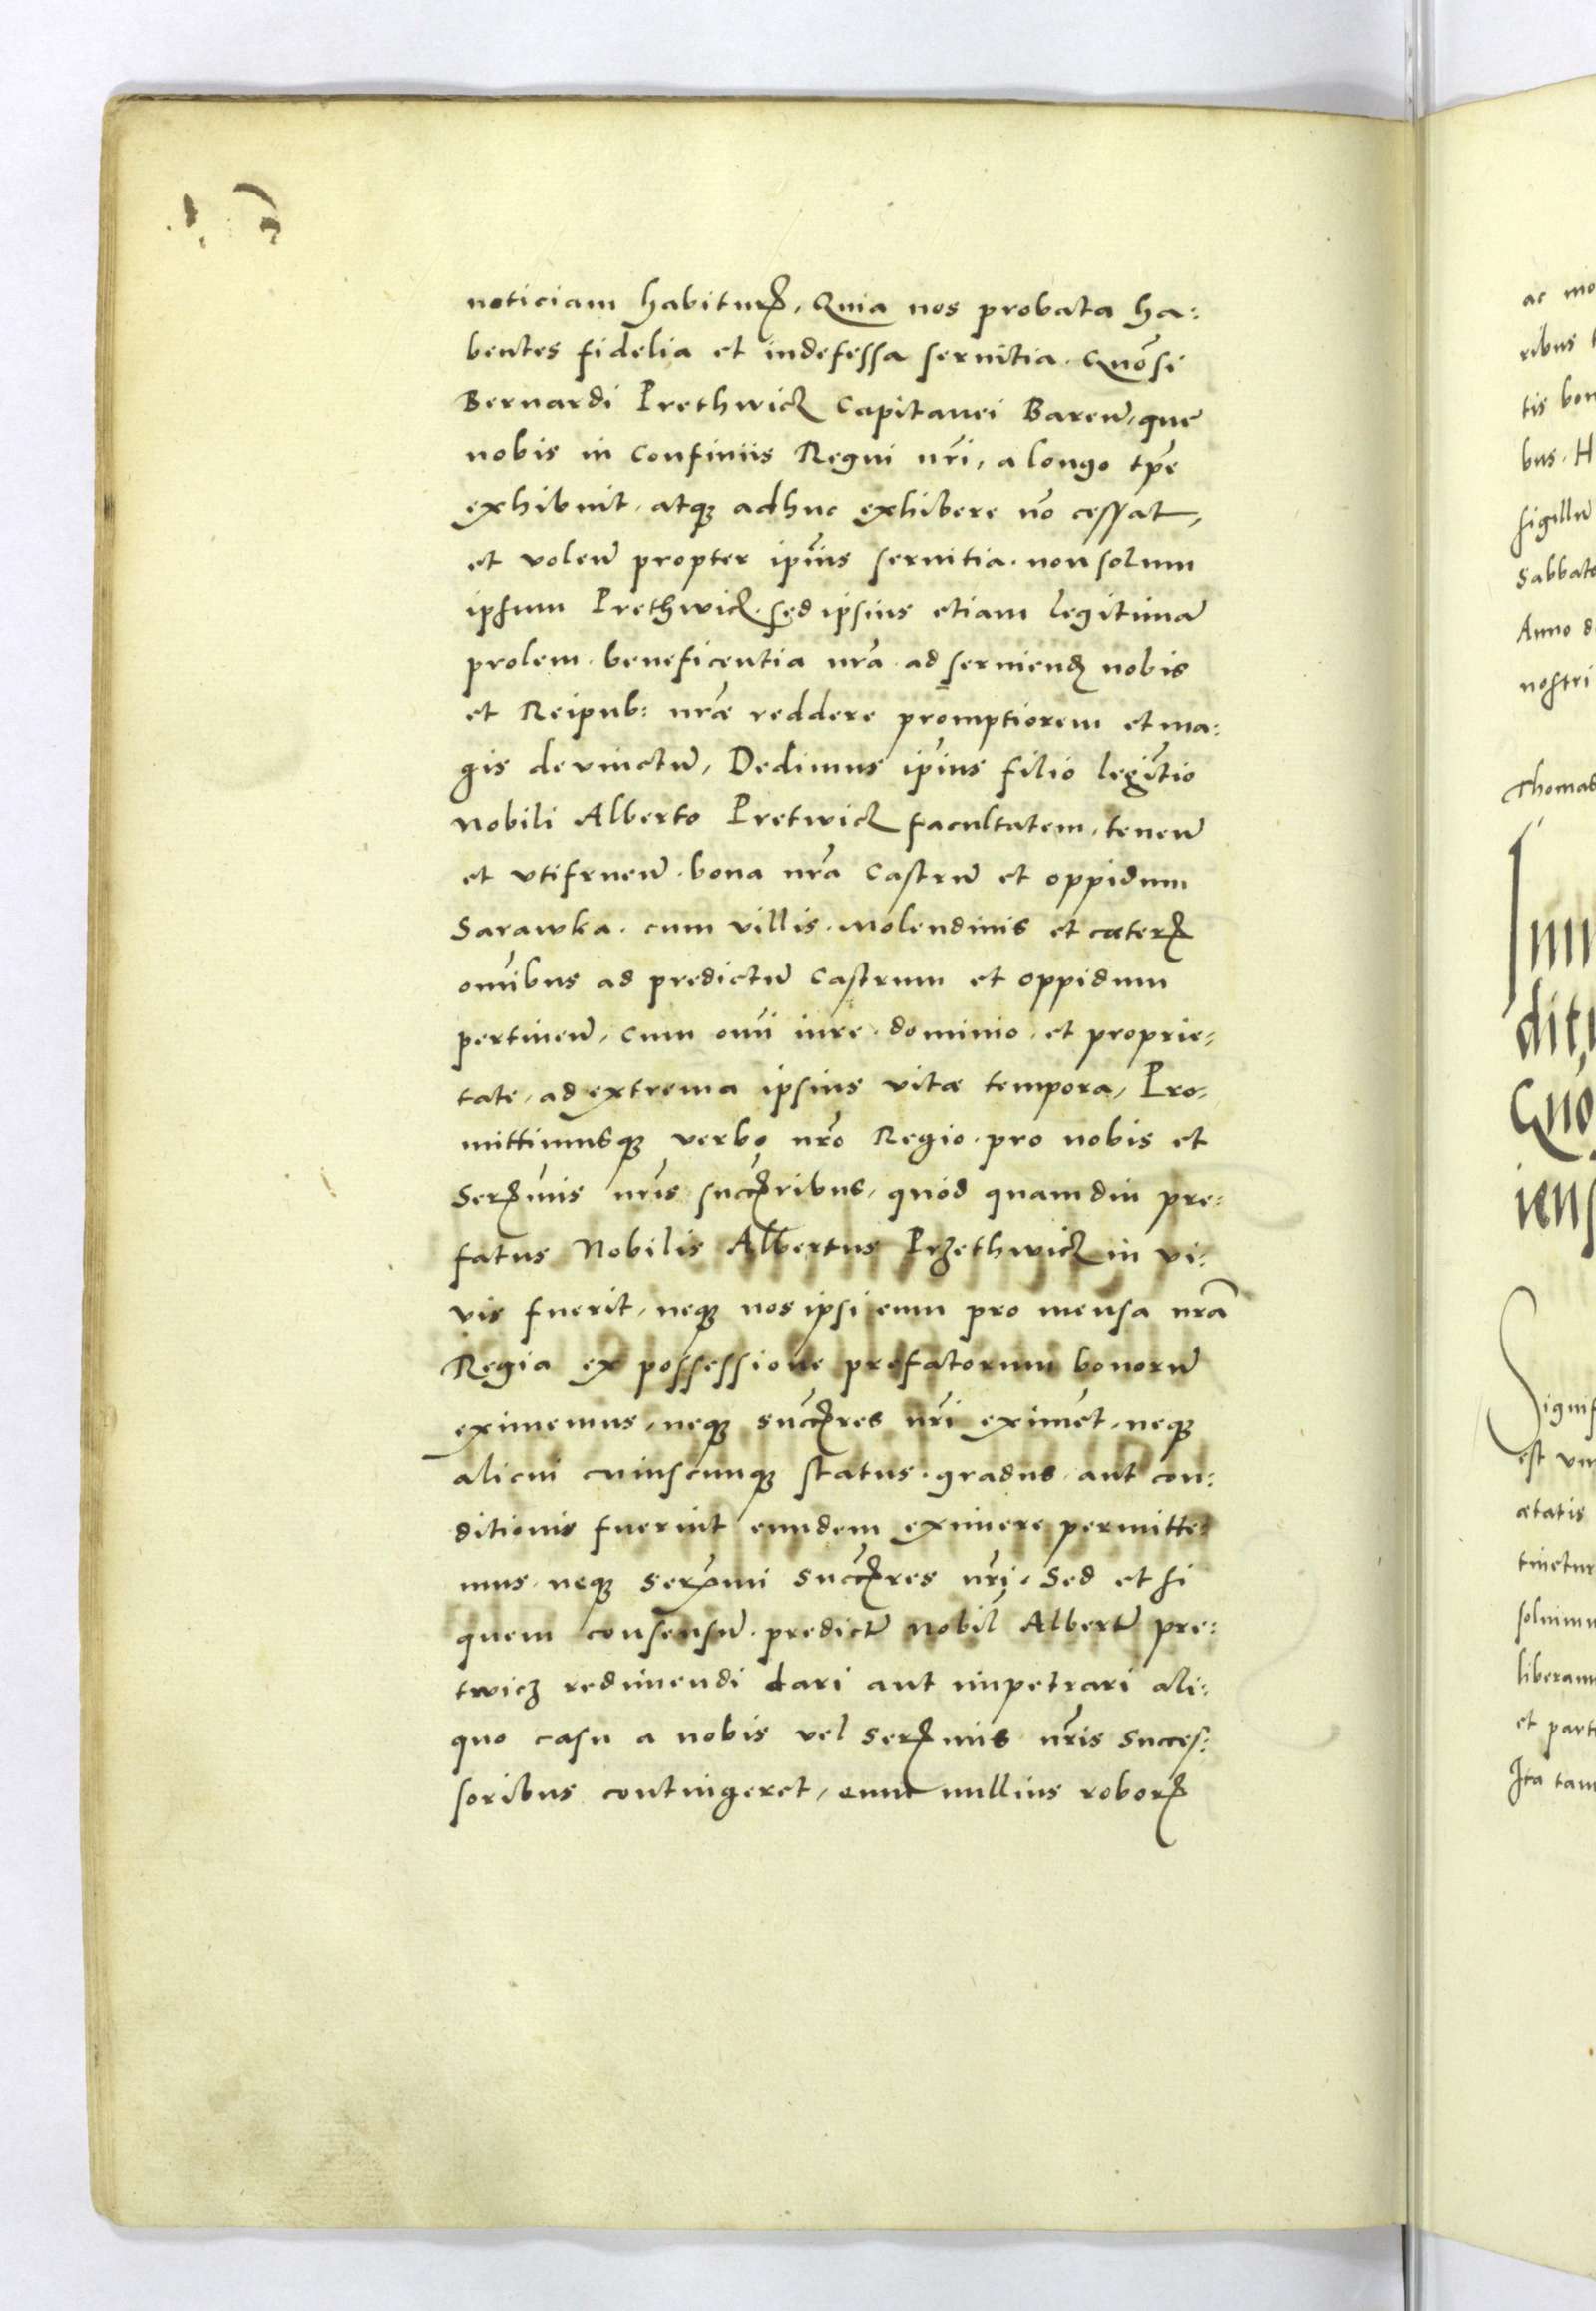 noticiam habitur̃. Quia nos probata ha:
bentes fidelia et indefessa seruitia. Gnõsi
Bernardi Prethwicz Capitanei Bareñ, que
nobis in Confiniis Regni nr̃i, a longo tp̃e
exhibuit, atq; adhuc exhibere nõ cessat,
et voleñ propter ip̃ius seruitia. non solum
ipsum Prethwicz. sed ipsius etiam legitimã
prolem. beneficentia nr̃a ad seruiend̃ nobis
et Reipub: nr̃æ reddere promptiorem et ma:
gis deuinctũ, Dedimus ip̃ius filio legit̃io
Nobili Alberto Pretwicz facultatem, teneñ
et vtifrueñ. bona nr̃a Castrũ et oppidum
Sarawka. cum villis. Molendinis et cæter̃
om̃ibus ad predictũ Castrum et oppidum
pertineñ, cum om̃i iure. dominio. et proprie:
tate, ad extrema ipsius vitæ tempora, Pro:
mittimusq; verbo nr̃o Regio. pro nobis et
Ser̃mis nr̃is succ̃ribus, quòd quamdiu pre:
fatus Nobilis Albertus Przethwicz in vi:
vis fuerit, neq; nos ipsi eum pro mensa nr̃a
Regia ex possessione prefatorum bonorũ
eximemus, neq; succ̃res nr̃i eximẽt, neq;
alicui cuiuscunq; status. gradus. aut con:
ditionis fuerint eundem eximere permitte:
mus. neq; ser̃mi succ̃res nr̃i. Sed et si
quem consensũ. predictũ Nobil̃ Albertũ pre:
twicz redimendi dari aut impetrari ali:
quo casu a nobis vel ser̃mis nr̃is succes:
soribus contingeret, eum nullius robor̃
ac
ribus
tis
bus.
sigillũ
Sabbato
Anno
nostri
Thomas
Quò
est
ætatis
tinetur
et
Ita tam